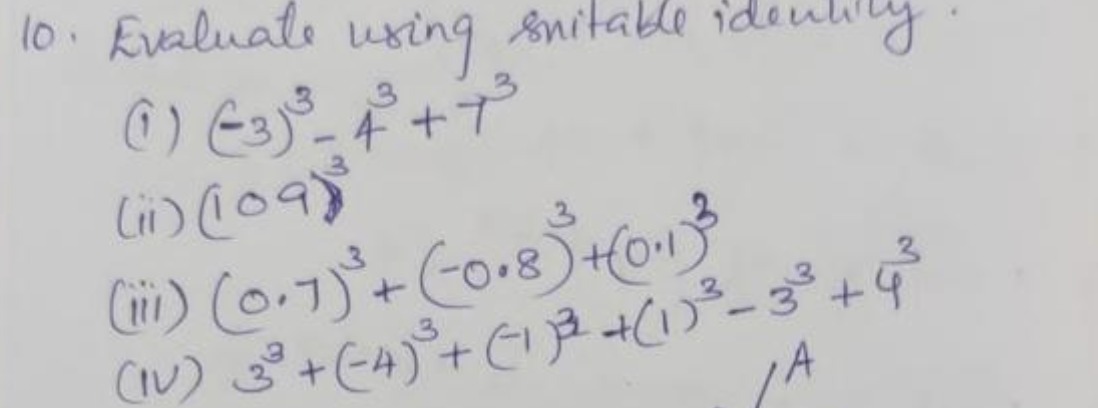 10. Evaluate using suitable identity.
(i) (-3)³ - 4³ + 7³
(ii) (109)³
(iii) (0.7)³ + (-0.8)³ + (0.1)³
(iv) 3³ + (-4)³ + (-1)³ + (1)³ - 3³ + 4³
A